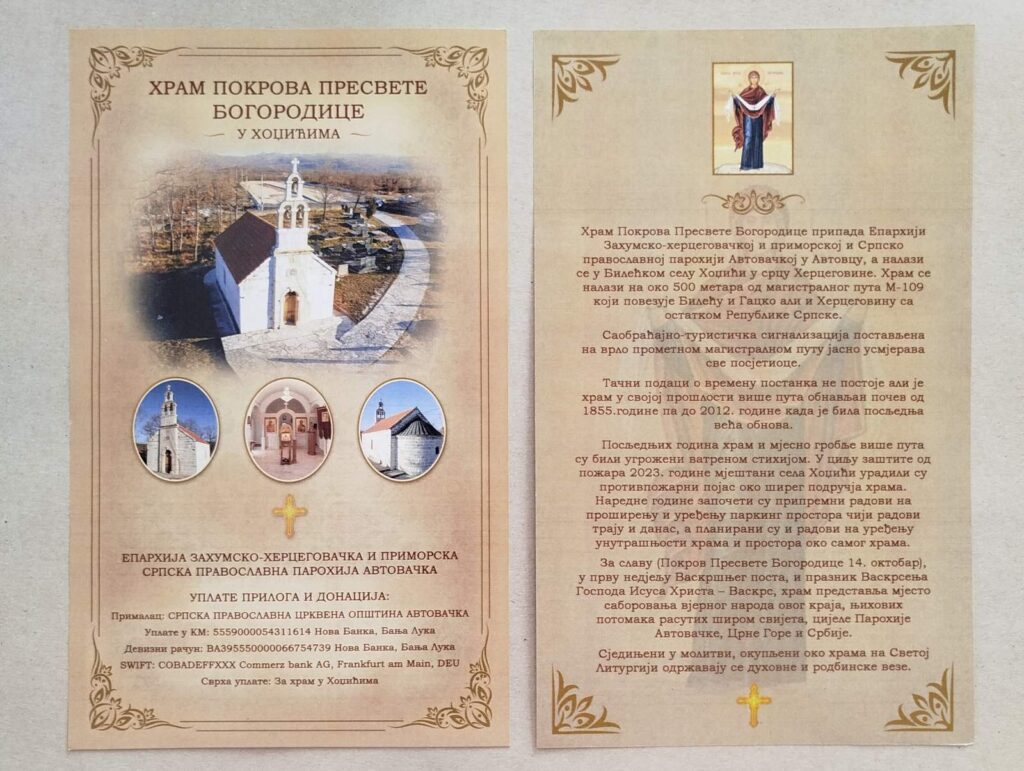 ХРАМ ПОКРОВА ПРЕСВЕТЕ
БОГОРОДИЦЕ
У ХОЏИЋИМА
ЕПАРХИЈА ЗАХУМСКО-ХЕРЦЕГОВАЧКА И ПРИМОРСКА
СРПСКА ПРАВОСЛАВНА ПАРОХИЈА АВТОВАЧКА
УПЛАТЕ ПРИЛОГА И ДОНАЦИЈА:
Прималац: СРПСКА ПРАВОСЛАВНА ЦРКВЕНА ОПШТИНА АВТОВАЧКА
Уплате у КМ: 5559000054311614 Нова Банка, Бања Лука
Девизни рачун: BA395550000066754739 Нова Банка, Бања Лука
SWIFT: COBADEFFXXX Commerz bank AG, Frankfurt am Main, DEU
Сврха уплате: За храм у Хоџићима
Храм Покрова Пресвете Богородице припада Епархији
Захумско-херцеговачкој и приморској и Српско
православној парохији Автовачкој у Автовцу, а налази
се у Билећком селу Хоџићи у срцу Херцеговине. Храм се
налази на око 500 метара од магистралног пута М-109
који повезује Билећу и Гацко али и Херцеговину са
остатком Републике Српске.
Саобраћајно-туристичка сигнализација постављена
на врло прометном магистралном путу јасно усмјерава
све посјетиоце.
Тачни подаци о времену постанка не постоје али је
храм у својој прошлости више пута обнављан почев од
1855.године па до 2012. године када је била посљедња
већа обнова.
Посљедњих година храм и мјесно гробље више пута
су били угрожени ватреном стихијом. У циљу заштите од
пожара 2023. године мјештани села Хоџићи урадили су
противпожарни појас око ширег подручја храма.
Наредне године започети су припремни радови на
проширењу и уређењу паркинг простора чији радови
трају и данас, а планирани су и радови на уређењу
унутрашњости храма и простора око самог храма.
За славу (Покров Пресвете Богородице 14. октобар),
у прву недјељу Васкршњег поста, и празник Васкрсења
Господа Исуса Христа – Васкрс, храм представља мјесто
саборовања вјерног народа овог краја, њихових
потомака расутих широм свијета, цијеле Парохије
Автовачке, Црне Горе и Србије.
Сједињени у молитви, окупљени око храма на Светој
Литургији одржавају се духовне и родбинске везе.